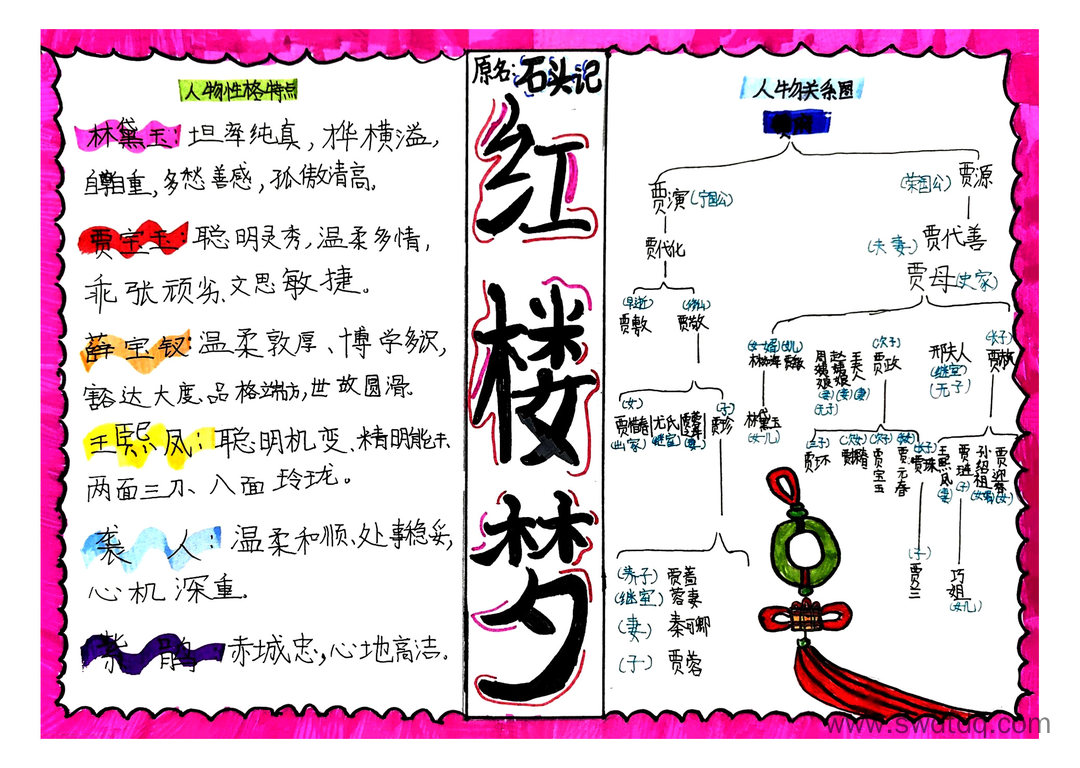 人物性格特点
林黛玉:坦率纯真,桦横溢,
自尊自重,多愁善感,孤傲清高.
贾宝玉:聪明灵秀,温柔多情,
乖张顽劣、文思敏捷。
薛宝钗:温柔敦厚、博学多识,
豁达大度、品格端方,世故圆滑.
王熙凤:聪明机变、精明能干
两面三刀、八面玲珑。
袭人:温柔和顺、处事稳妥,
心机深重.
紫鹃:赤城忠,心地高洁.
原名:石头记
红楼梦
人物关系图
贾演(宁国公)
(荣国公)贾源
贾代化
(夫妻)贾代善
贾母(史家)
(早逝)
贾敷
贾敬
(女婿)(女儿)
林如海 贾敏
周姨娘 赵姨娘 王夫人
(妾)(妾)(妻)
(无子)
(次子)
贾政
邢夫人
(继室)
(无子)
(长子)
贾赦
(女)
贾惜春
(出家)
尤氏
(继室)
(子)
贾珍
林黛玉
(女儿)
贾环
(次女)
贾探春
(次子)
贾宝玉
贾元春
(长子)
贾珠
王熙凤
(妻)
贾琏
(子)
孙绍祖
(女婿)
贾迎春
(女)
(子)
贾兰
巧姐
(女儿)
(养子)贾蔷
(继室)蓉妻
(妻)秦可卿
(子)贾蓉
www.swdtdq.com